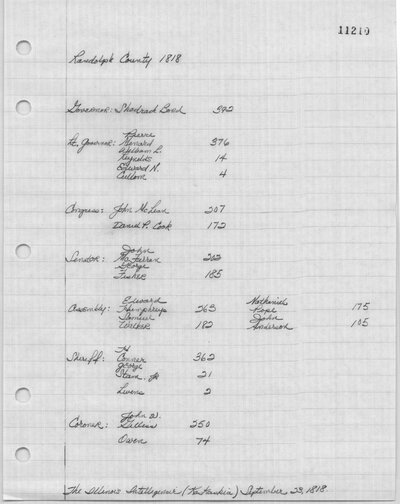 11210
Randolph County 1818
Governor: Shadrach Bond 392
Pierre
Lt. Governor: Menard 376
William L.
Reynolds 14
Edward N.
Cullom 4
Congress: John McLean 207
Daniel P. Cook 172
John
Senator: McFerran 202
George
Fisher 185
Edward Nathaniel
Assembly: Humphreys 263 Pope 175
Samuel John
Walker 182 Anderson 105
H
Sheriff: Conner 362
George
Stann, Jr 21
Livens 2
John W.
Coroner: Gilless 250
Owen 74
The Illinois Intelligencer (Kaskaskia) September 23, 1818